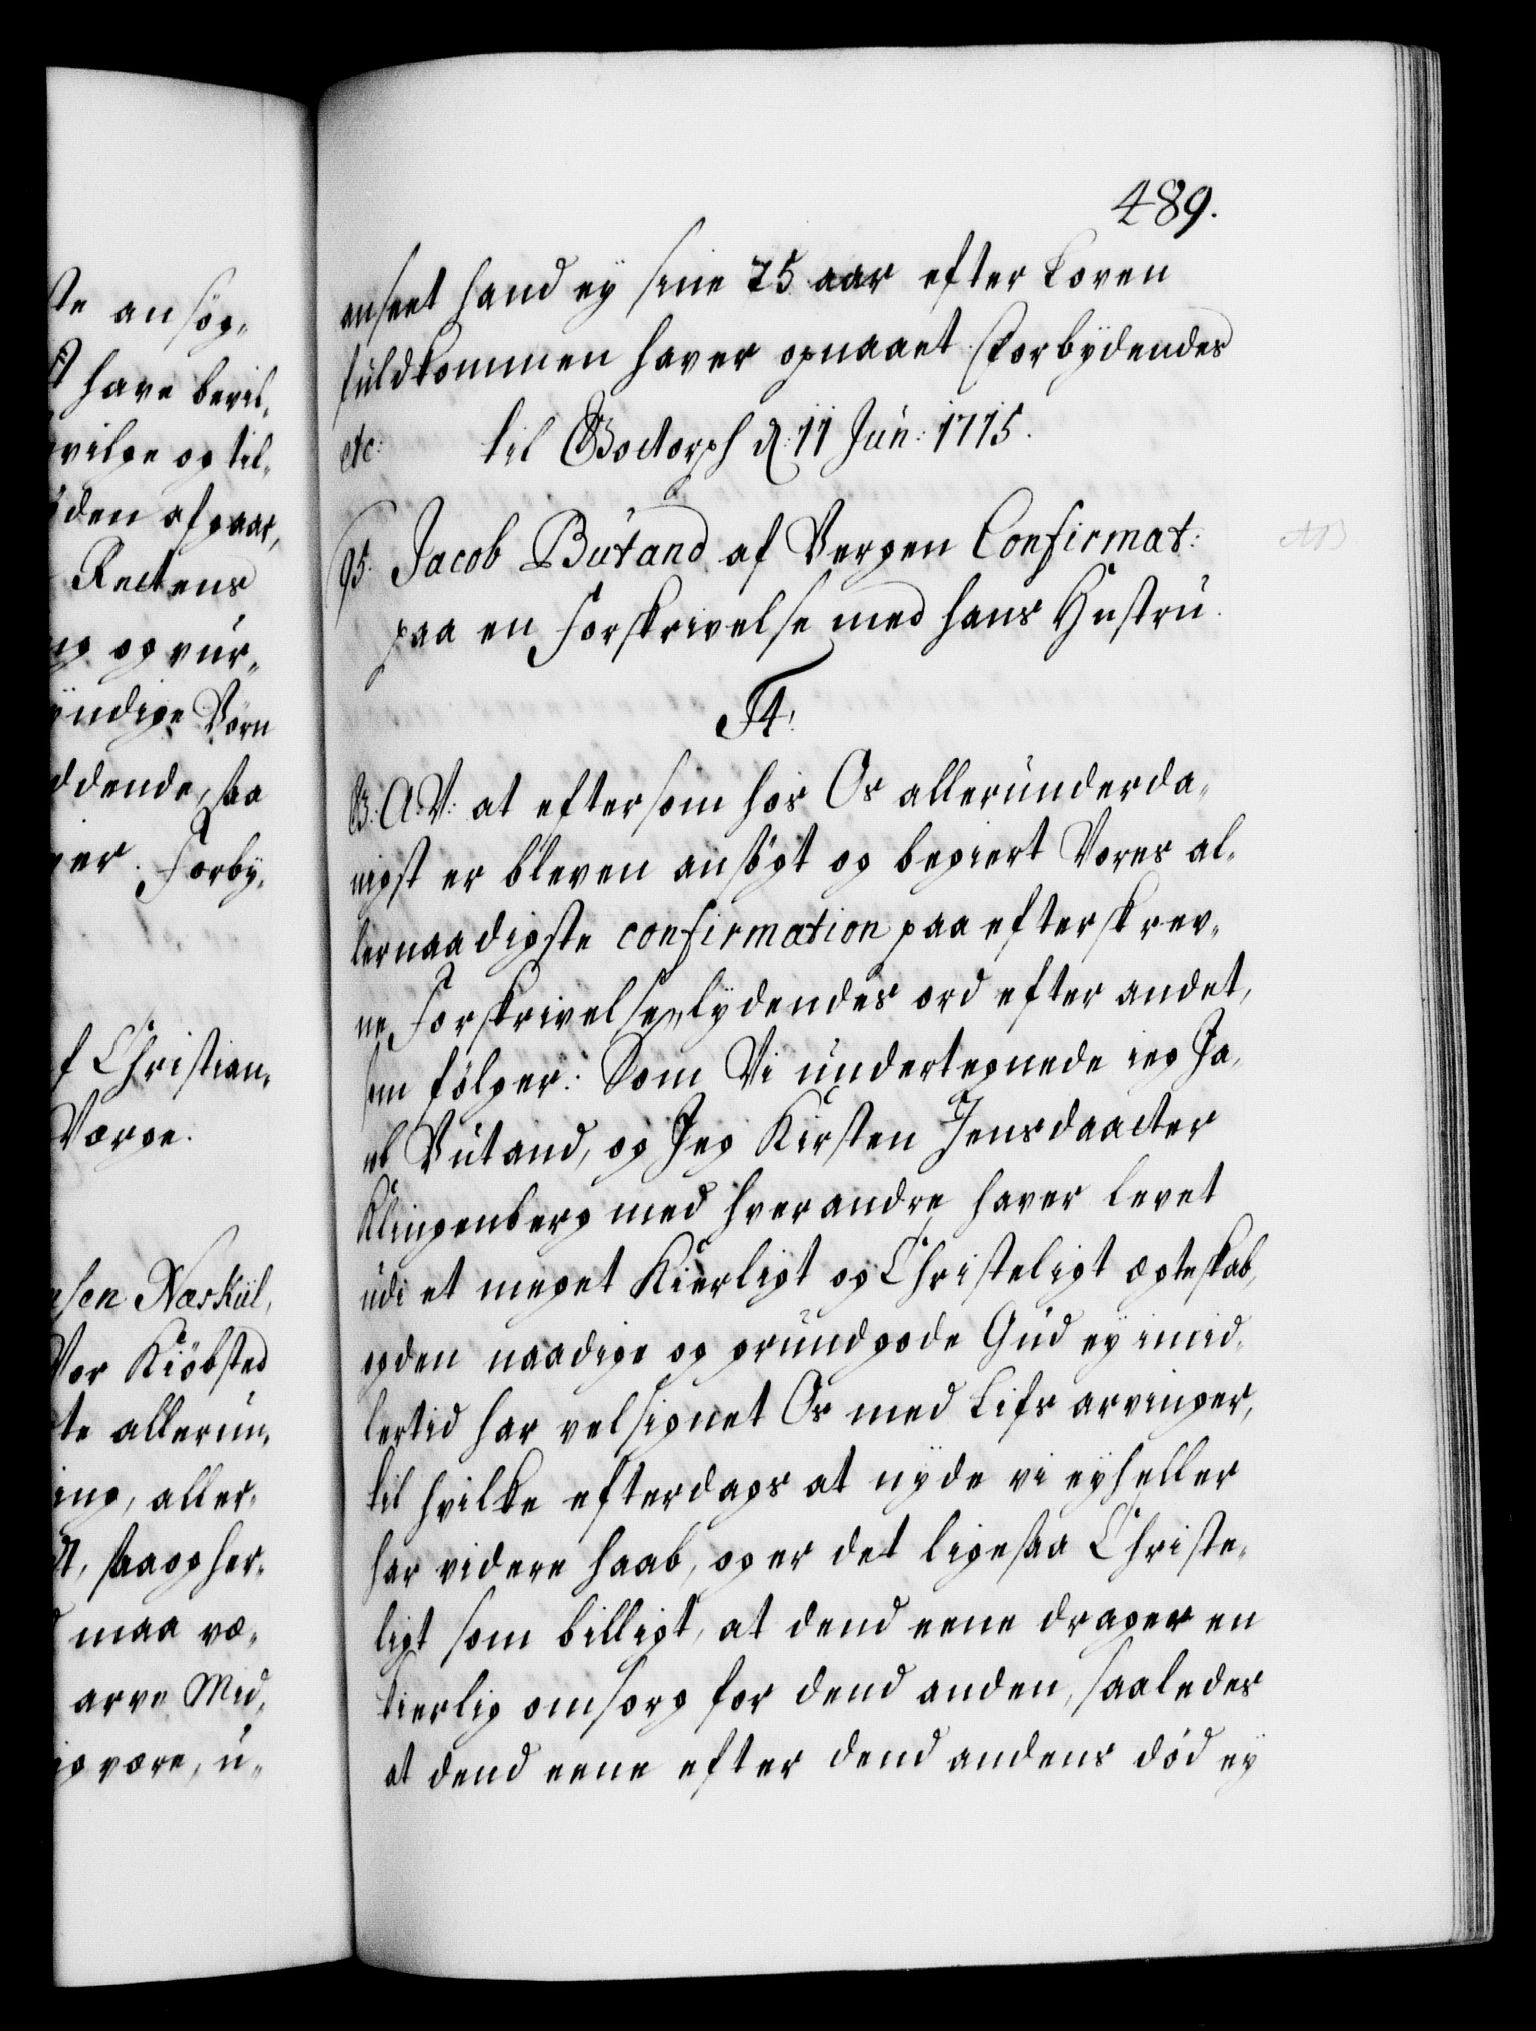 ste ansøg-
have bevil-
vilge og til-
den afgaar,
Rettens
ig og vur-
yndige Værn
ddende, saa
er. Forby-
f Christian-
Værge.
nsen Næskül,
Vor Kiöbsted
te allerun-
ing, aller-
dt, saa og her-
maa væ-
arve Mid-
ig være, u-
489.
anseet hand ey sine 25 aar efter Loven
fuldkommen haver opnaaet. Forbydendes
etc: til Gottorph d: 11 Jun: 1715.
95. Jacob Butand af Bergen Confirmat:
paa en Forskrivelse med hans Hustru.
F4.
G: A: V: at eftersom hos Os allerunderda-
nigst er bleven ansögt og begiert Vores al-
lernaadigste confirmation paa efterskrev-
ne Forskrivelse, lydendes ord efter andet,
som fölger: Som Vi undertegnede ieg Ja-
cob Butand, og Jeg Kirsten Jensdaatter
Klingenberg med hverandre haver levet
udi et meget Kierligt og Christeligt ægteskab,
og den naadige og grundgode Gud ey imid-
lertid har velsignet Os med Lifs arvinger,
til hvilke efterdags at nyde vi ey heller
har videre haab, og er det ligesaa Christe-
ligt som billigt, at dend eene drager en
kierlig omsorg for dend anden, saaledes
at dend eene efter dend andens död ey